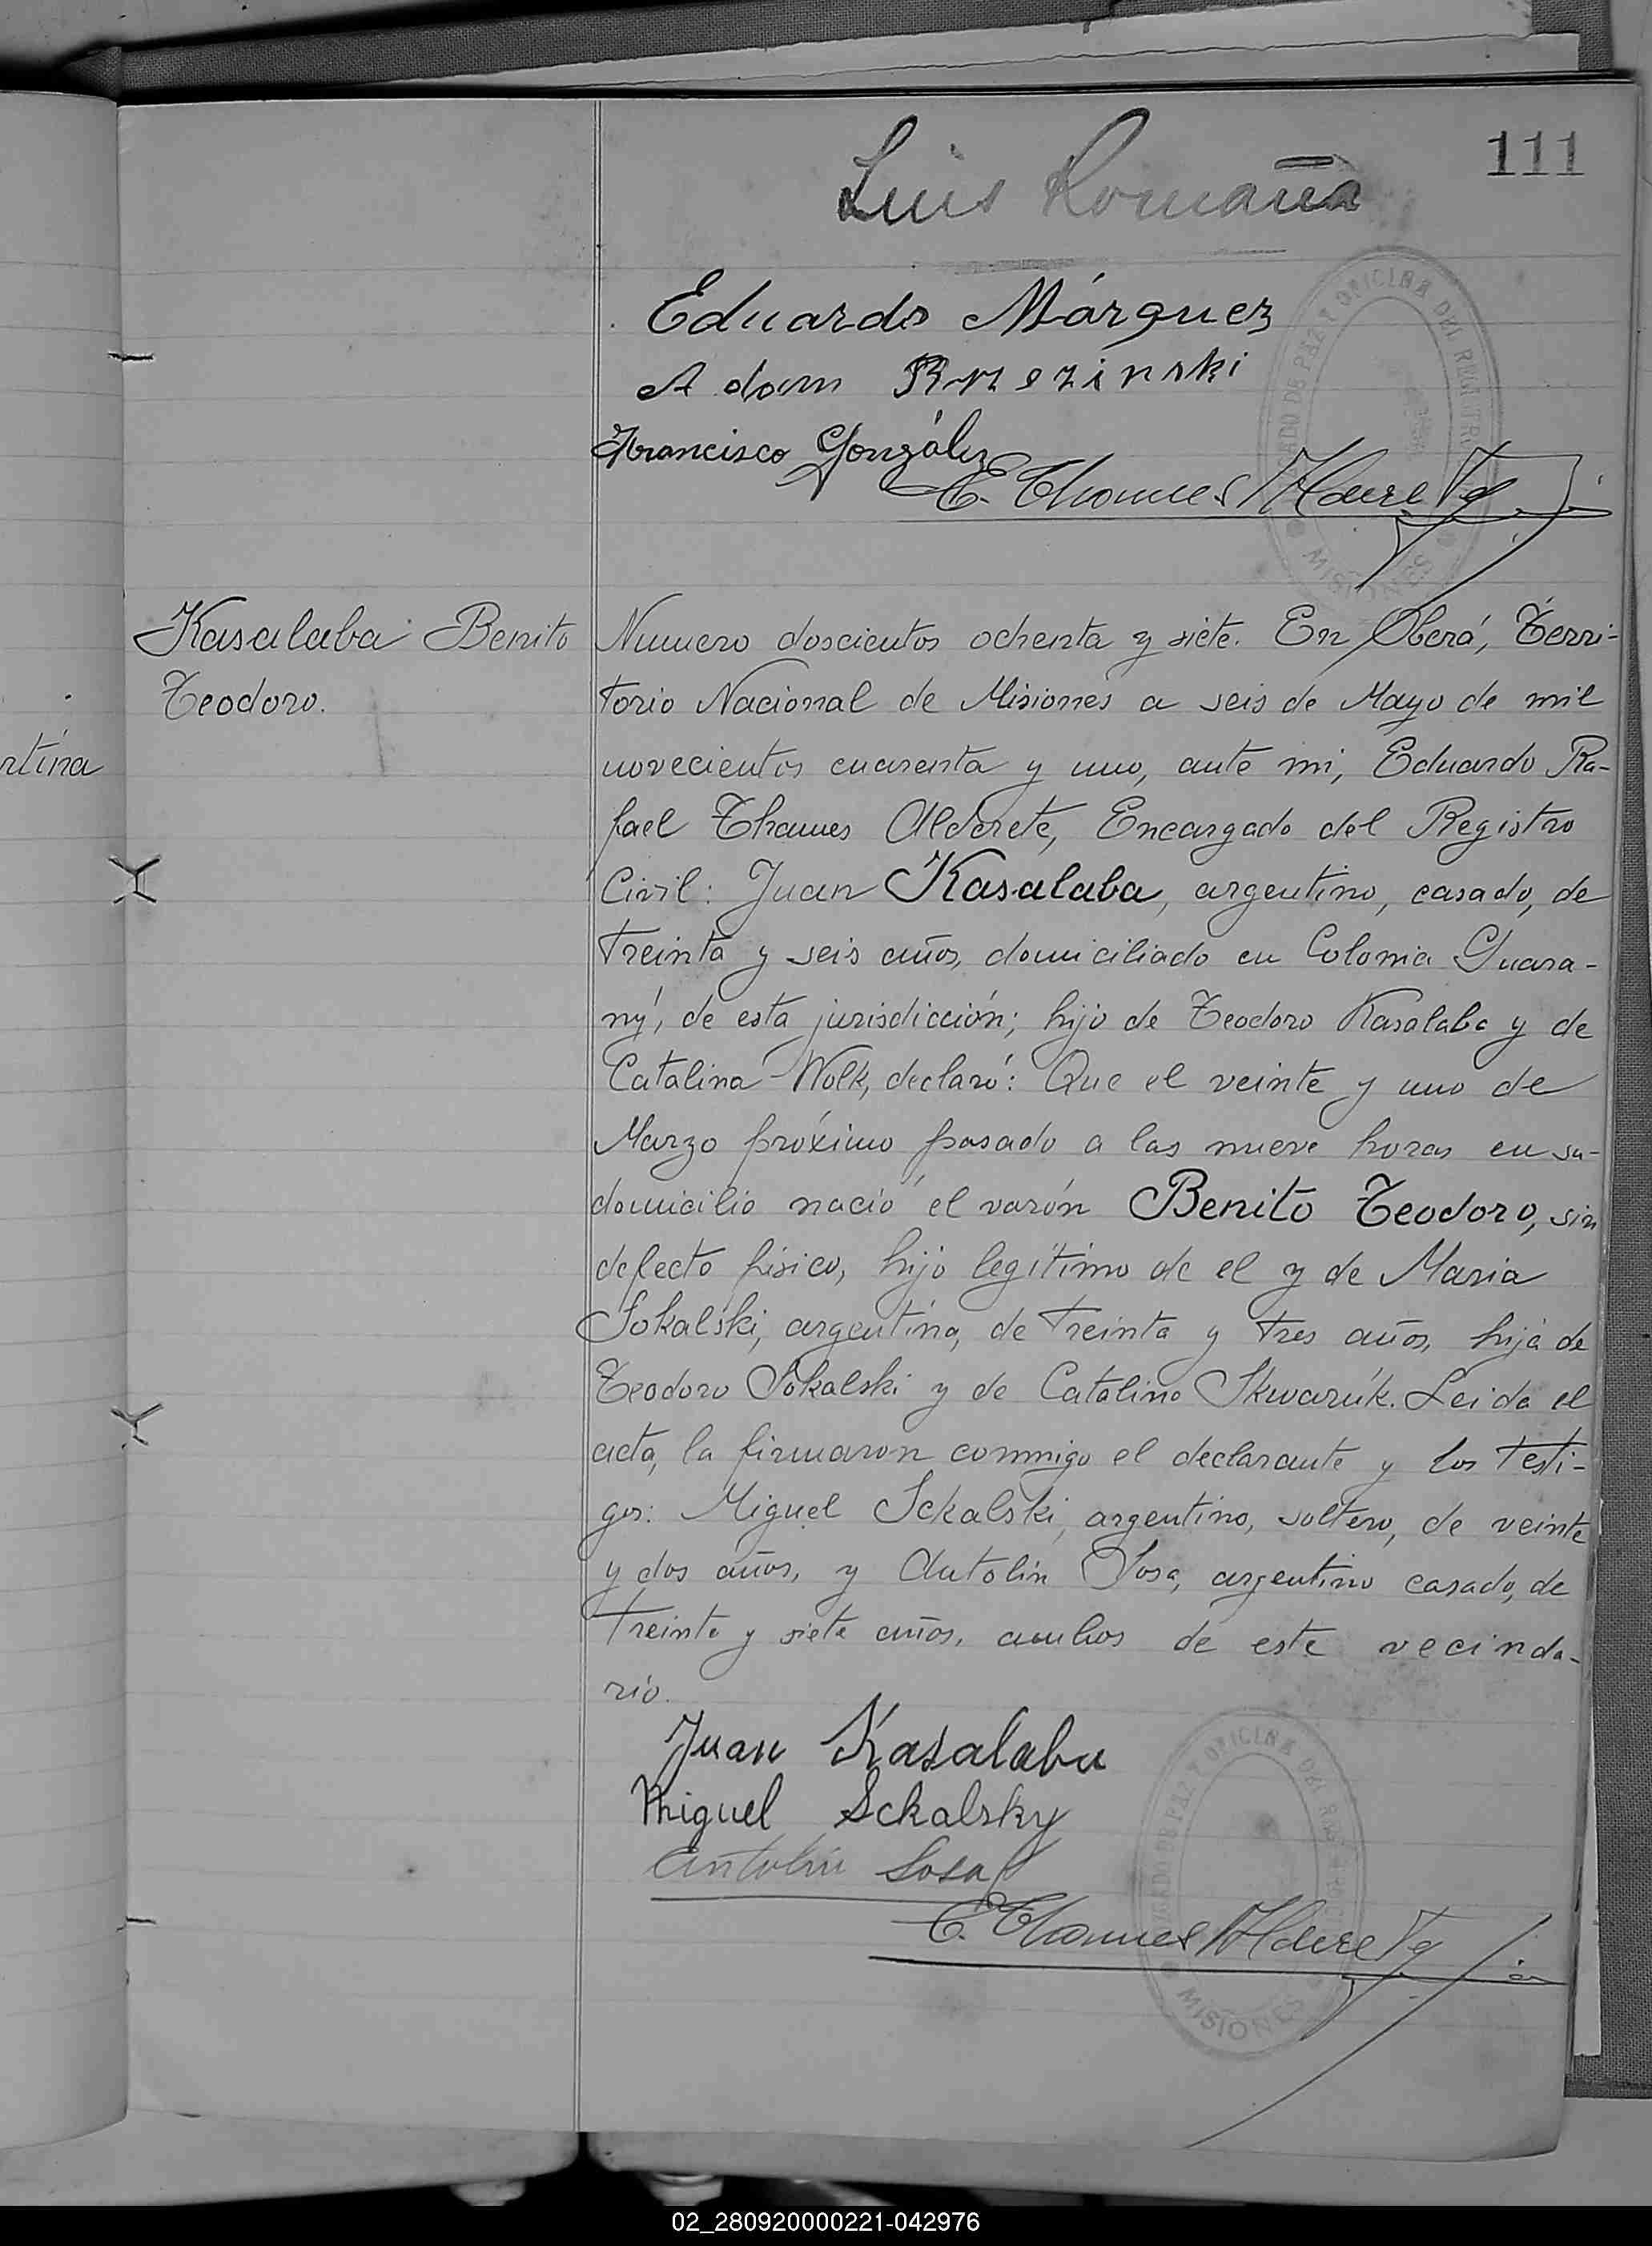 111
Luis Romaña
Eduardo Márquez
Adam Brzezinski
Francisco González
E. Thames Alderete
JUZGADO DE PAZ Y OFICINA DEL REGISTRO
MISIONES
Kasalaba Benito
Teodoro.
rtina
Numero doscientos ochenta y siete. En Oberá, Terri-
torio Nacional de Misiones a seis de Mayo de mil
novecientos cuarenta y uno, ante mi, Eduardo Ra-
fael Thames Alderete, Encargado del Registro
Civil: Juan Kasalaba, argentino, casado, de
treinta y seis años, domiciliado en Colonia Guara-
ný, de esta jurisdicción; hijo de Teodoro Kasalaba y de
Catalina Wolk, declaró: Que el veinte y uno de
Marzo próximo pasado a las nueve horas en su-
domicilio nació el varón Benito Teodoro, sin
defecto físico, hijo legítimo de el y de Maria
Sokalski, argentina, de treinta y tres años, hija de
Teodoro Sokalski y de Catalina Skwarúk. Leida el
acta, la firmaron conmigo el declarante y los testi-
gos: Miguel Sckalski, argentino, soltero, de veinte
y dos años, y Antolín Sosa, argentino casado, de
treinta y siete años, ambos de este vecinda-
rio.
Juan Kasalaba
Miguel Sckalsky
Antolin Sosa
E. Thames Alderete
MISIONES
02_280920000221-042976